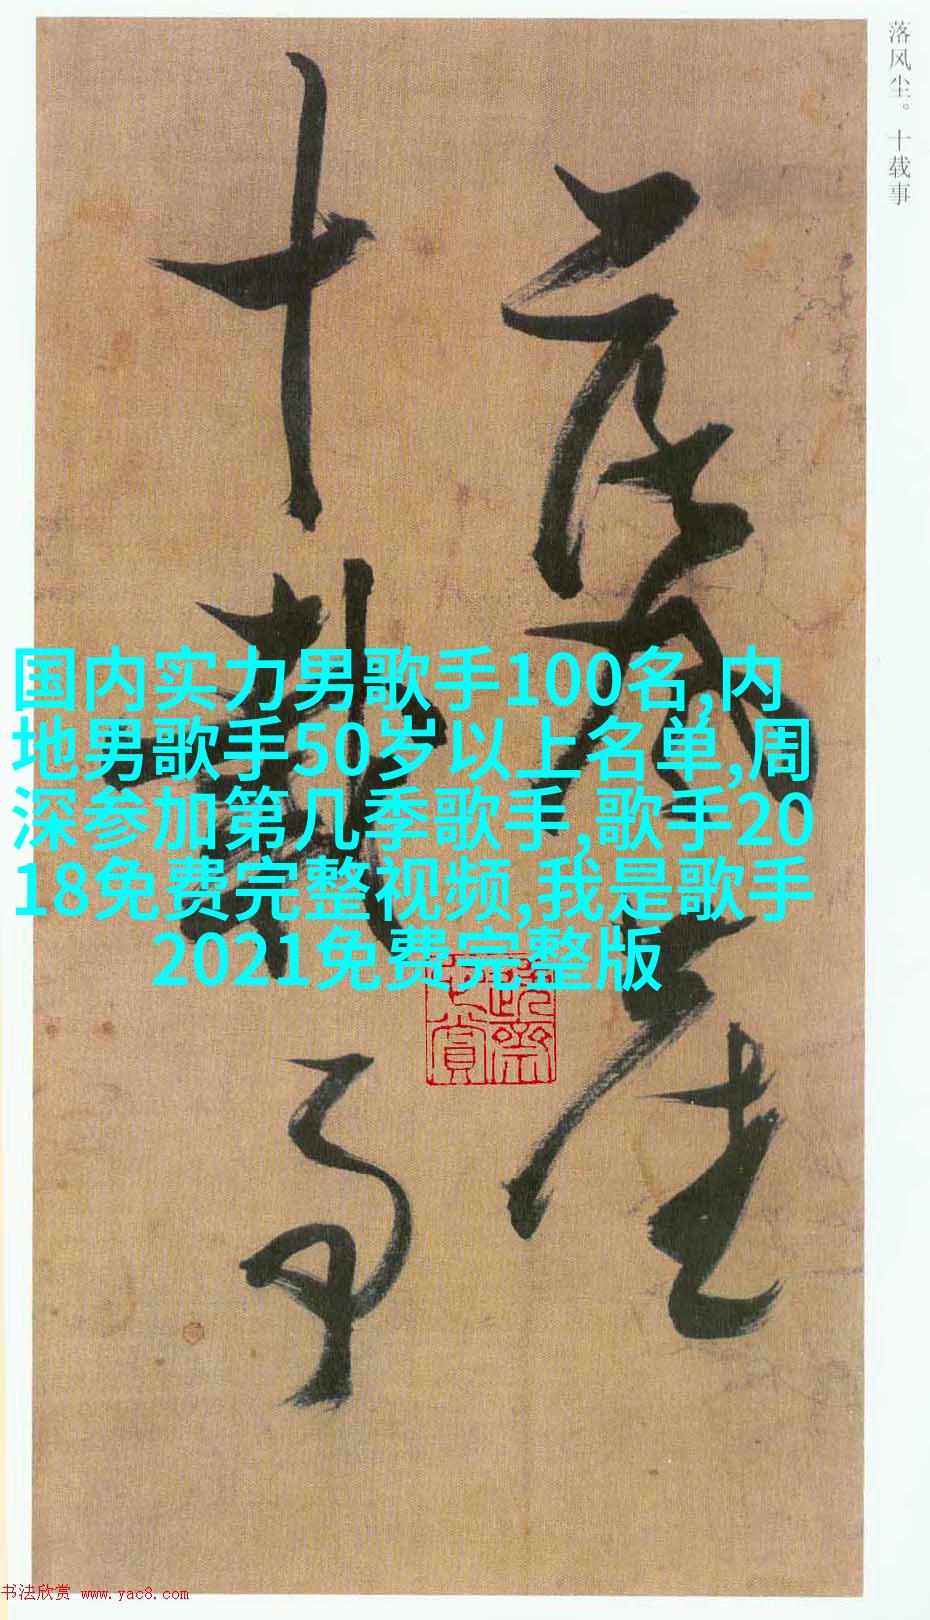 落风尘。十载事
落风尘
十载事
国内实力男歌手100名,内
地男歌手50岁以上名单,周
深参加第几季歌手,歌手20
18免费完整视频,我是歌手
2021免费完整版
书法欣赏 www.yac8.com